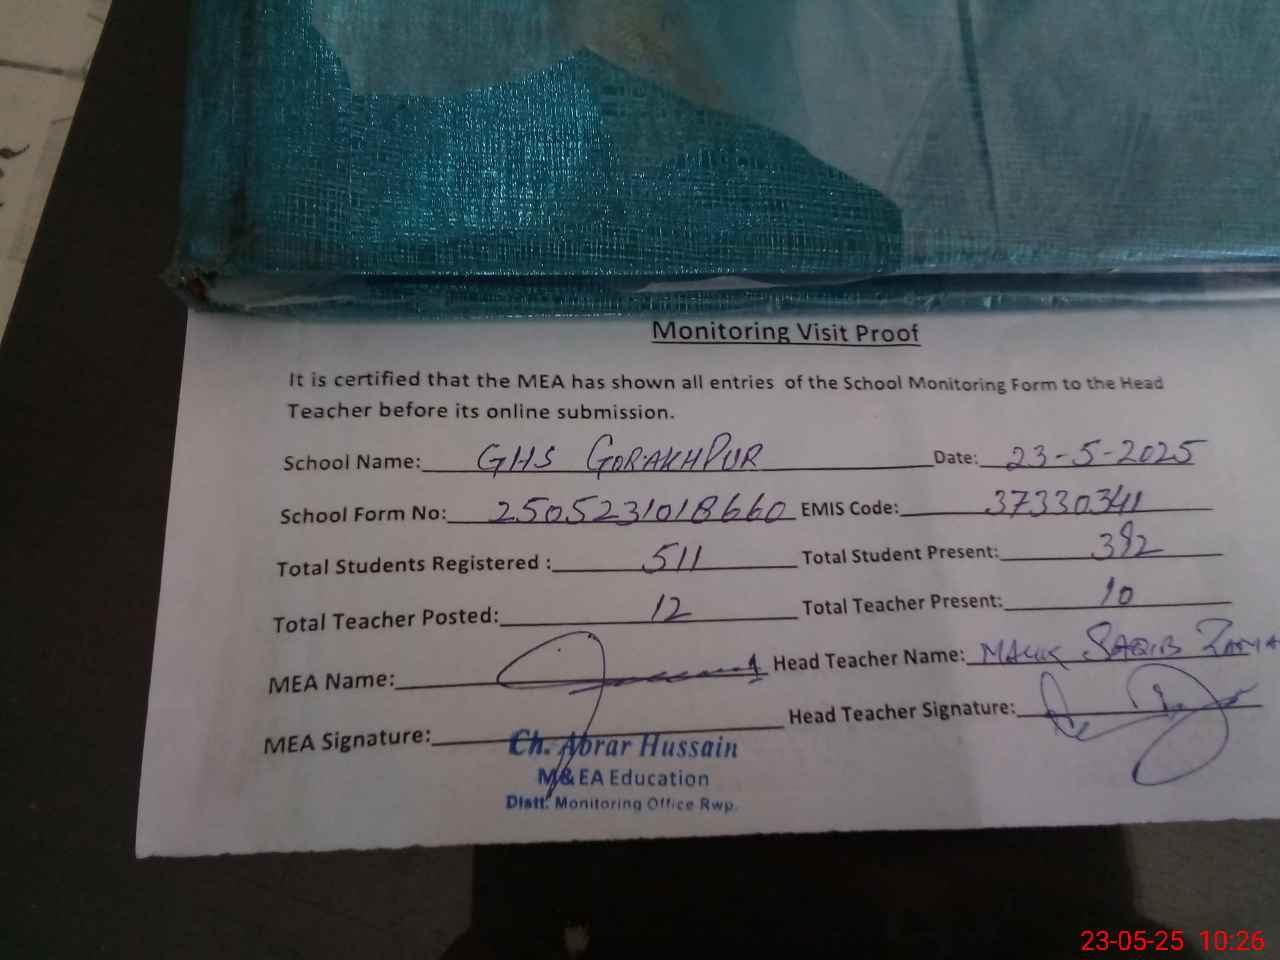 Monitoring Visit Proof
It is certified that the MEA has shown all entries of the School Monitoring Form to the Head
Teacher before its online submission.
School Name: GHS GORAKHPUR Date: 23-5-2025
School Form No: 2505231018660 EMIS Code: 37330341
Total Students Registered : 511 Total Student Present: 392
Total Teacher Posted: 12 Total Teacher Present: 10
MEA Name: Head Teacher Name: MALIK SAQIB
MEA Signature: Head Teacher Signature:
Ch. Abrar Hussain
M&EA Education
Distt. Monitoring Office Rwp.
23-05-25 10:26